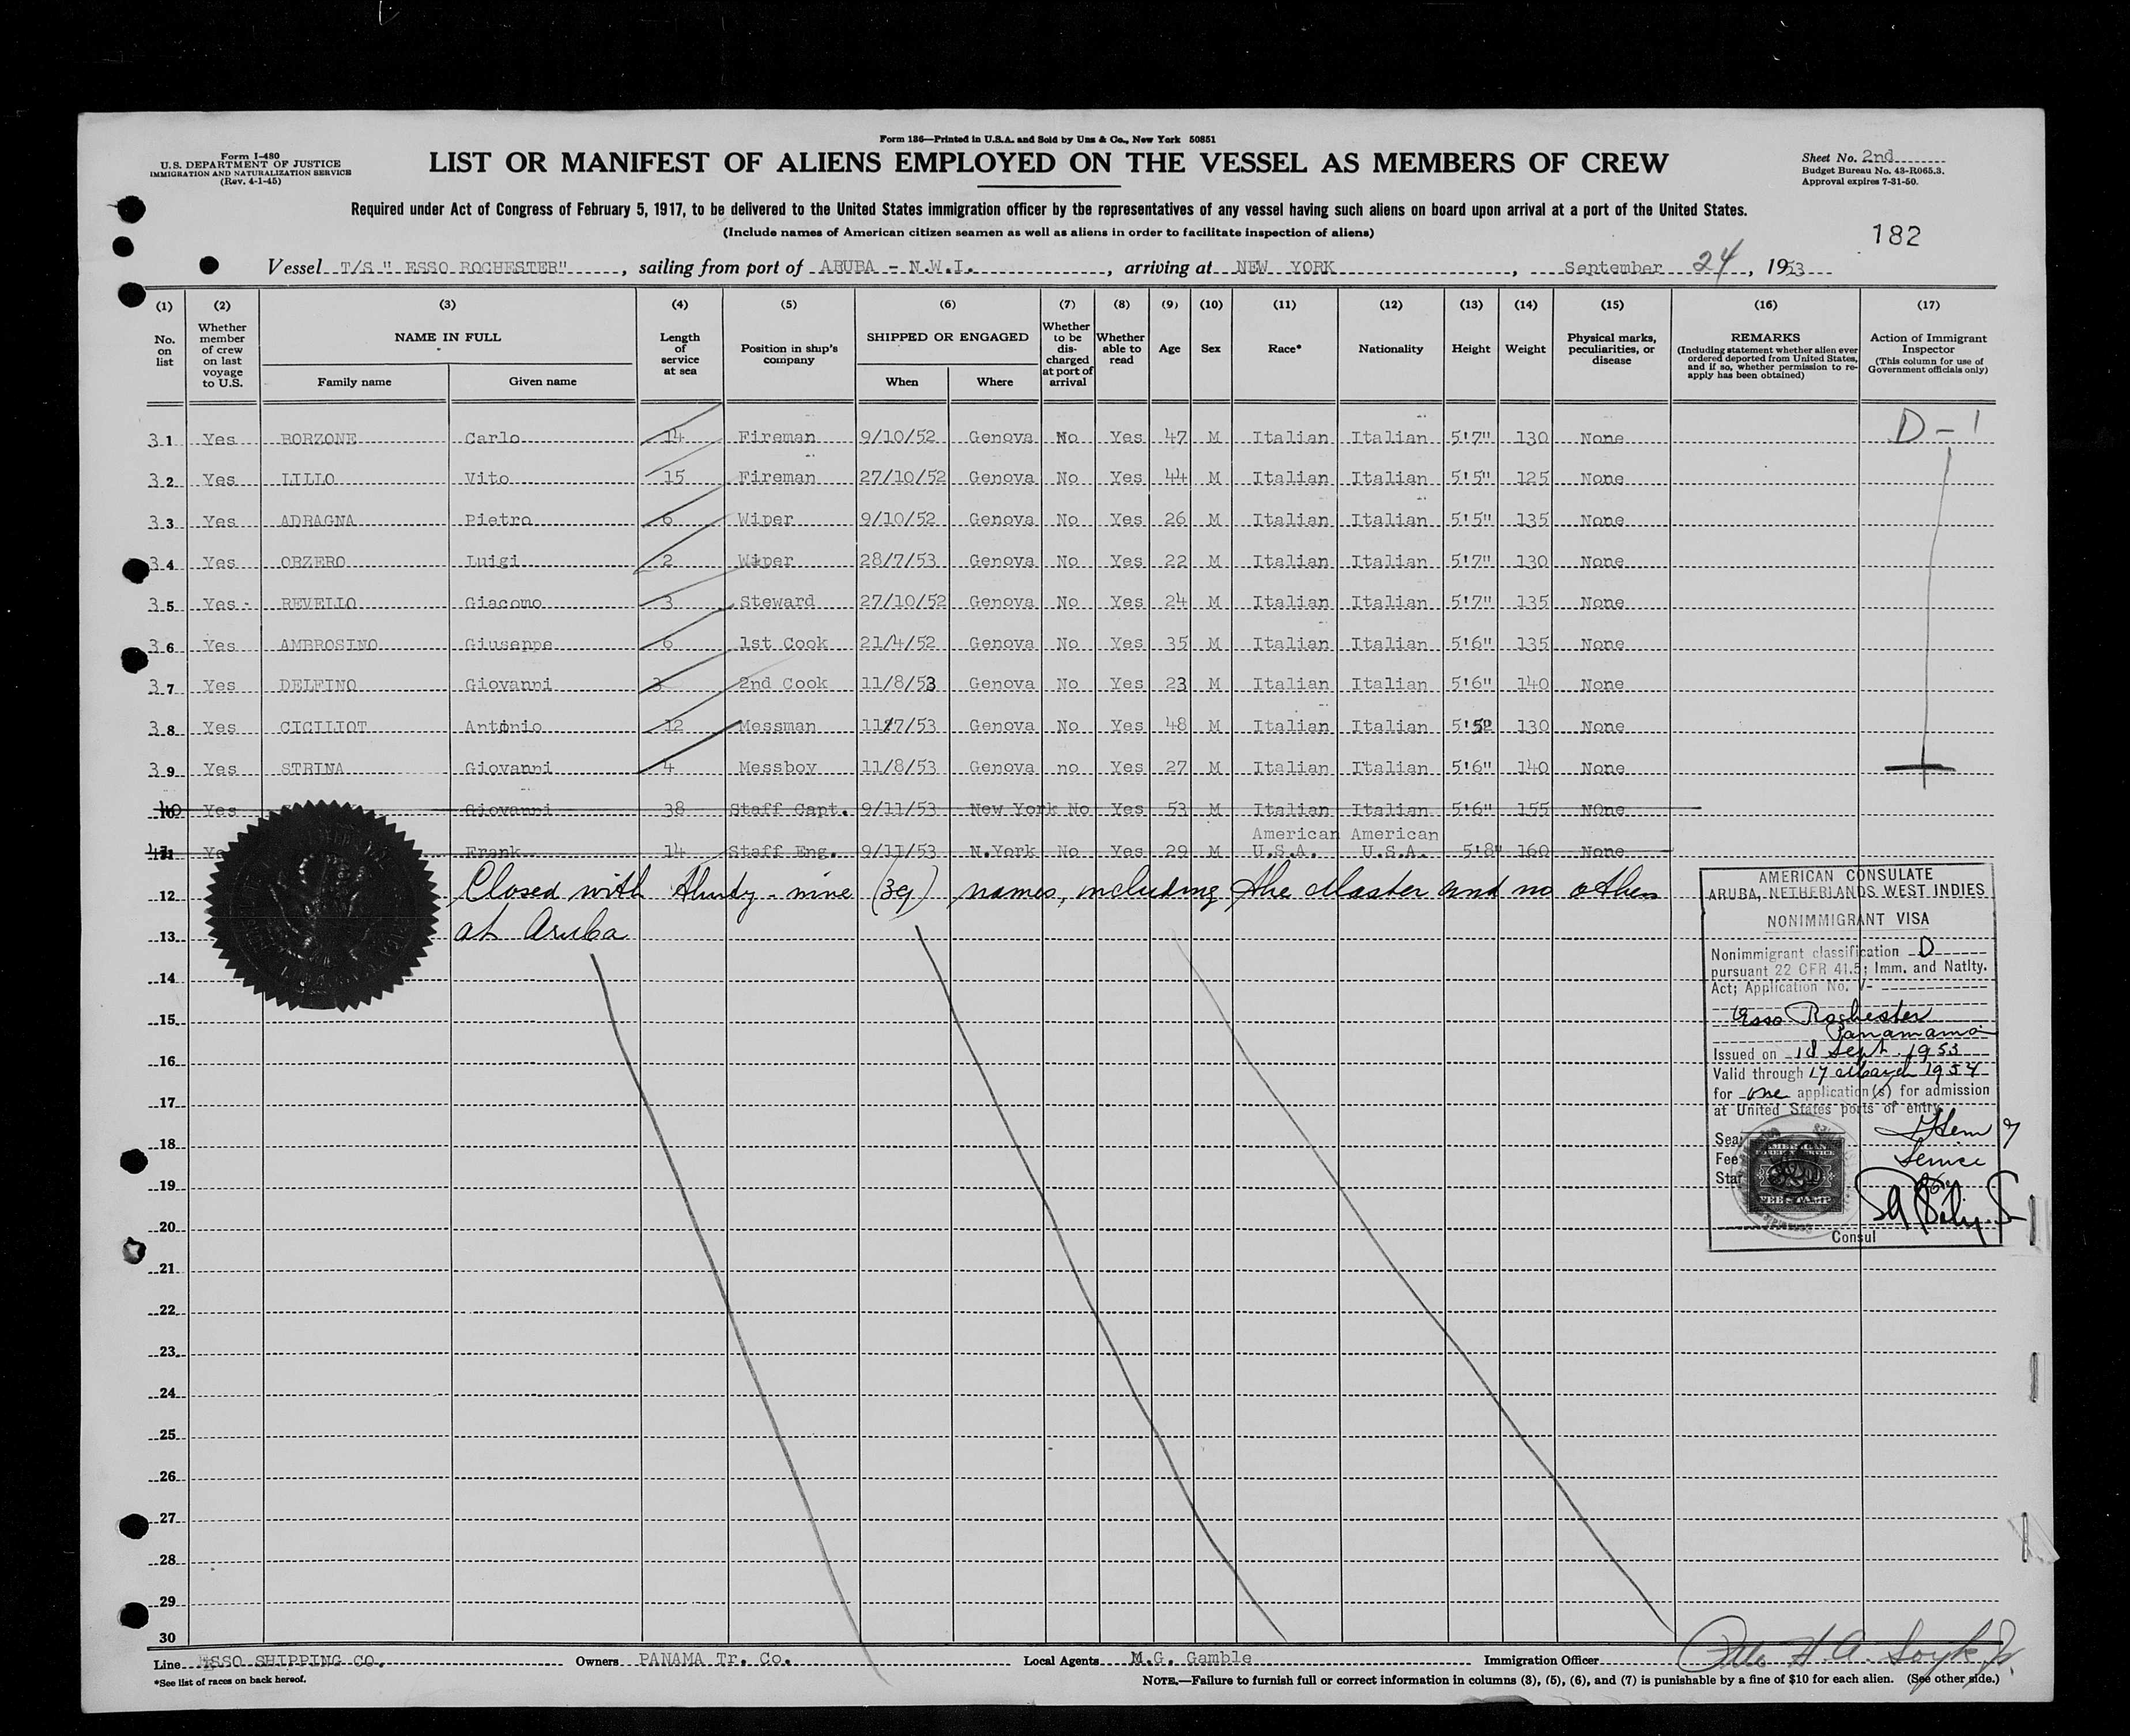 Form 136—Printed in U.S.A. and Sold by Unz & Co., New York 50851
Form I-480
U.S. DEPARTMENT OF JUSTICE
IMMIGRATION AND NATURALIZATION SERVICE
(Rev. 4-1-45)
LIST OR MANIFEST OF ALIENS EMPLOYED ON THE VESSEL AS MEMBERS OF CREW
Sheet No. 2nd
Budget Bureau No. 43-R065.3.
Approval expires 7-31-50.
Required under Act of Congress of February 5, 1917, to be delivered to the United States immigration officer by the representatives of any vessel having such aliens on board upon arrival at a port of the United States.
(Include names of American citizen seamen as well as aliens in order to facilitate inspection of aliens)
182
Vessel T/S " ESSO ROCHESTER" , sailing from port of ARUBA - N.W.I. , arriving at NEW YORK , September 24 , 1953
(1) (2) (3) (4) (5) (6) (7) (8) (9) (10) (11) (12) (13) (14) (15) (16) (17)
No. on list
Whether member of crew on last voyage to U.S.
NAME IN FULL
Family name Given name
Length of service at sea
Position in ship's company
SHIPPED OR ENGAGED
When Where
Whether to be discharged at port of arrival
Whether able to read
Age
Sex
Race*
Nationality
Height
Weight
Physical marks, peculiarities, or disease
REMARKS
(Including statement whether alien ever ordered deported from United States, and if so, whether permission to re-apply has been obtained)
Action of Immigrant Inspector
(This column for use of Government officials only)
31 Yes BORZONE Carlo 14 Fireman 9/10/52 Genova No Yes 47 M Italian Italian 5'7" 130 None D-1
32 Yes LILLO Vito 15 Fireman 27/10/52 Genova No Yes 44 M Italian Italian 5'5" 125 None
33 Yes ADRAGNA Pietro 6 Wiper 9/10/52 Genova No Yes 26 M Italian Italian 5'5" 135 None
34 Yes ORZERO Luigi 2 Wiper 28/7/53 Genova No Yes 22 M Italian Italian 5'7" 130 None
35 Yes REVELLO Giacomo 3 Steward 27/10/52 Genova No Yes 24 M Italian Italian 5'7" 135 None
36 Yes AMBROSINO Giuseppe 6 1st Cook 21/4/52 Genova No Yes 35 M Italian Italian 5'6" 135 None
37 Yes DELFINO Giovanni 3 2nd Cook 11/8/53 Genova No Yes 23 M Italian Italian 5'6" 140 None
38 Yes CICILIOT Antonio 12 Messman 11/7/53 Genova No Yes 48 M Italian Italian 5'5" 130 None
39 Yes STRINA Giovanni 4 Messboy 11/8/53 Genova no Yes 27 M Italian Italian 5'6" 140 None
40 Yes Giovanni 38 Staff Capt. 9/11/53 New York No Yes 53 M Italian Italian 5'6" 155 NOne
American American
41 Frank 14 Staff Eng. 9/11/53 N.York No Yes 29 M U.S.A. U.S.A. 5'8" 160 None
12 Closed with thirty-nine (39) names, including the Master and no other
13 at Aruba
14
15
16
17
18
19
20
21
22
23
24
25
26
27
28
29
30
AMERICAN CONSULATE
ARUBA, NETHERLANDS WEST INDIES
NONIMMIGRANT VISA
Nonimmigrant classification D
pursuant 22 CFR 41.5; Imm. and Natlty.
Act; Application No. V-
Esso Rochester
Panamanian
Issued on 18 Sept. 1953
Valid through 17 March 1954
for one application(s) for admission
at United States ports of entry
Seal
Fee
AMERICAN
FOREIGN SERVICE
FEE STAMP
Consul
Line ESSO SHIPPING CO. Owners PANAMA Tr. Co. Local Agents M.G. Gamble Immigration Officer
*See list of races on back hereof.
NOTE.—Failure to furnish full or correct information in columns (3), (5), (6), and (7) is punishable by a fine of $10 for each alien. (See other side.)